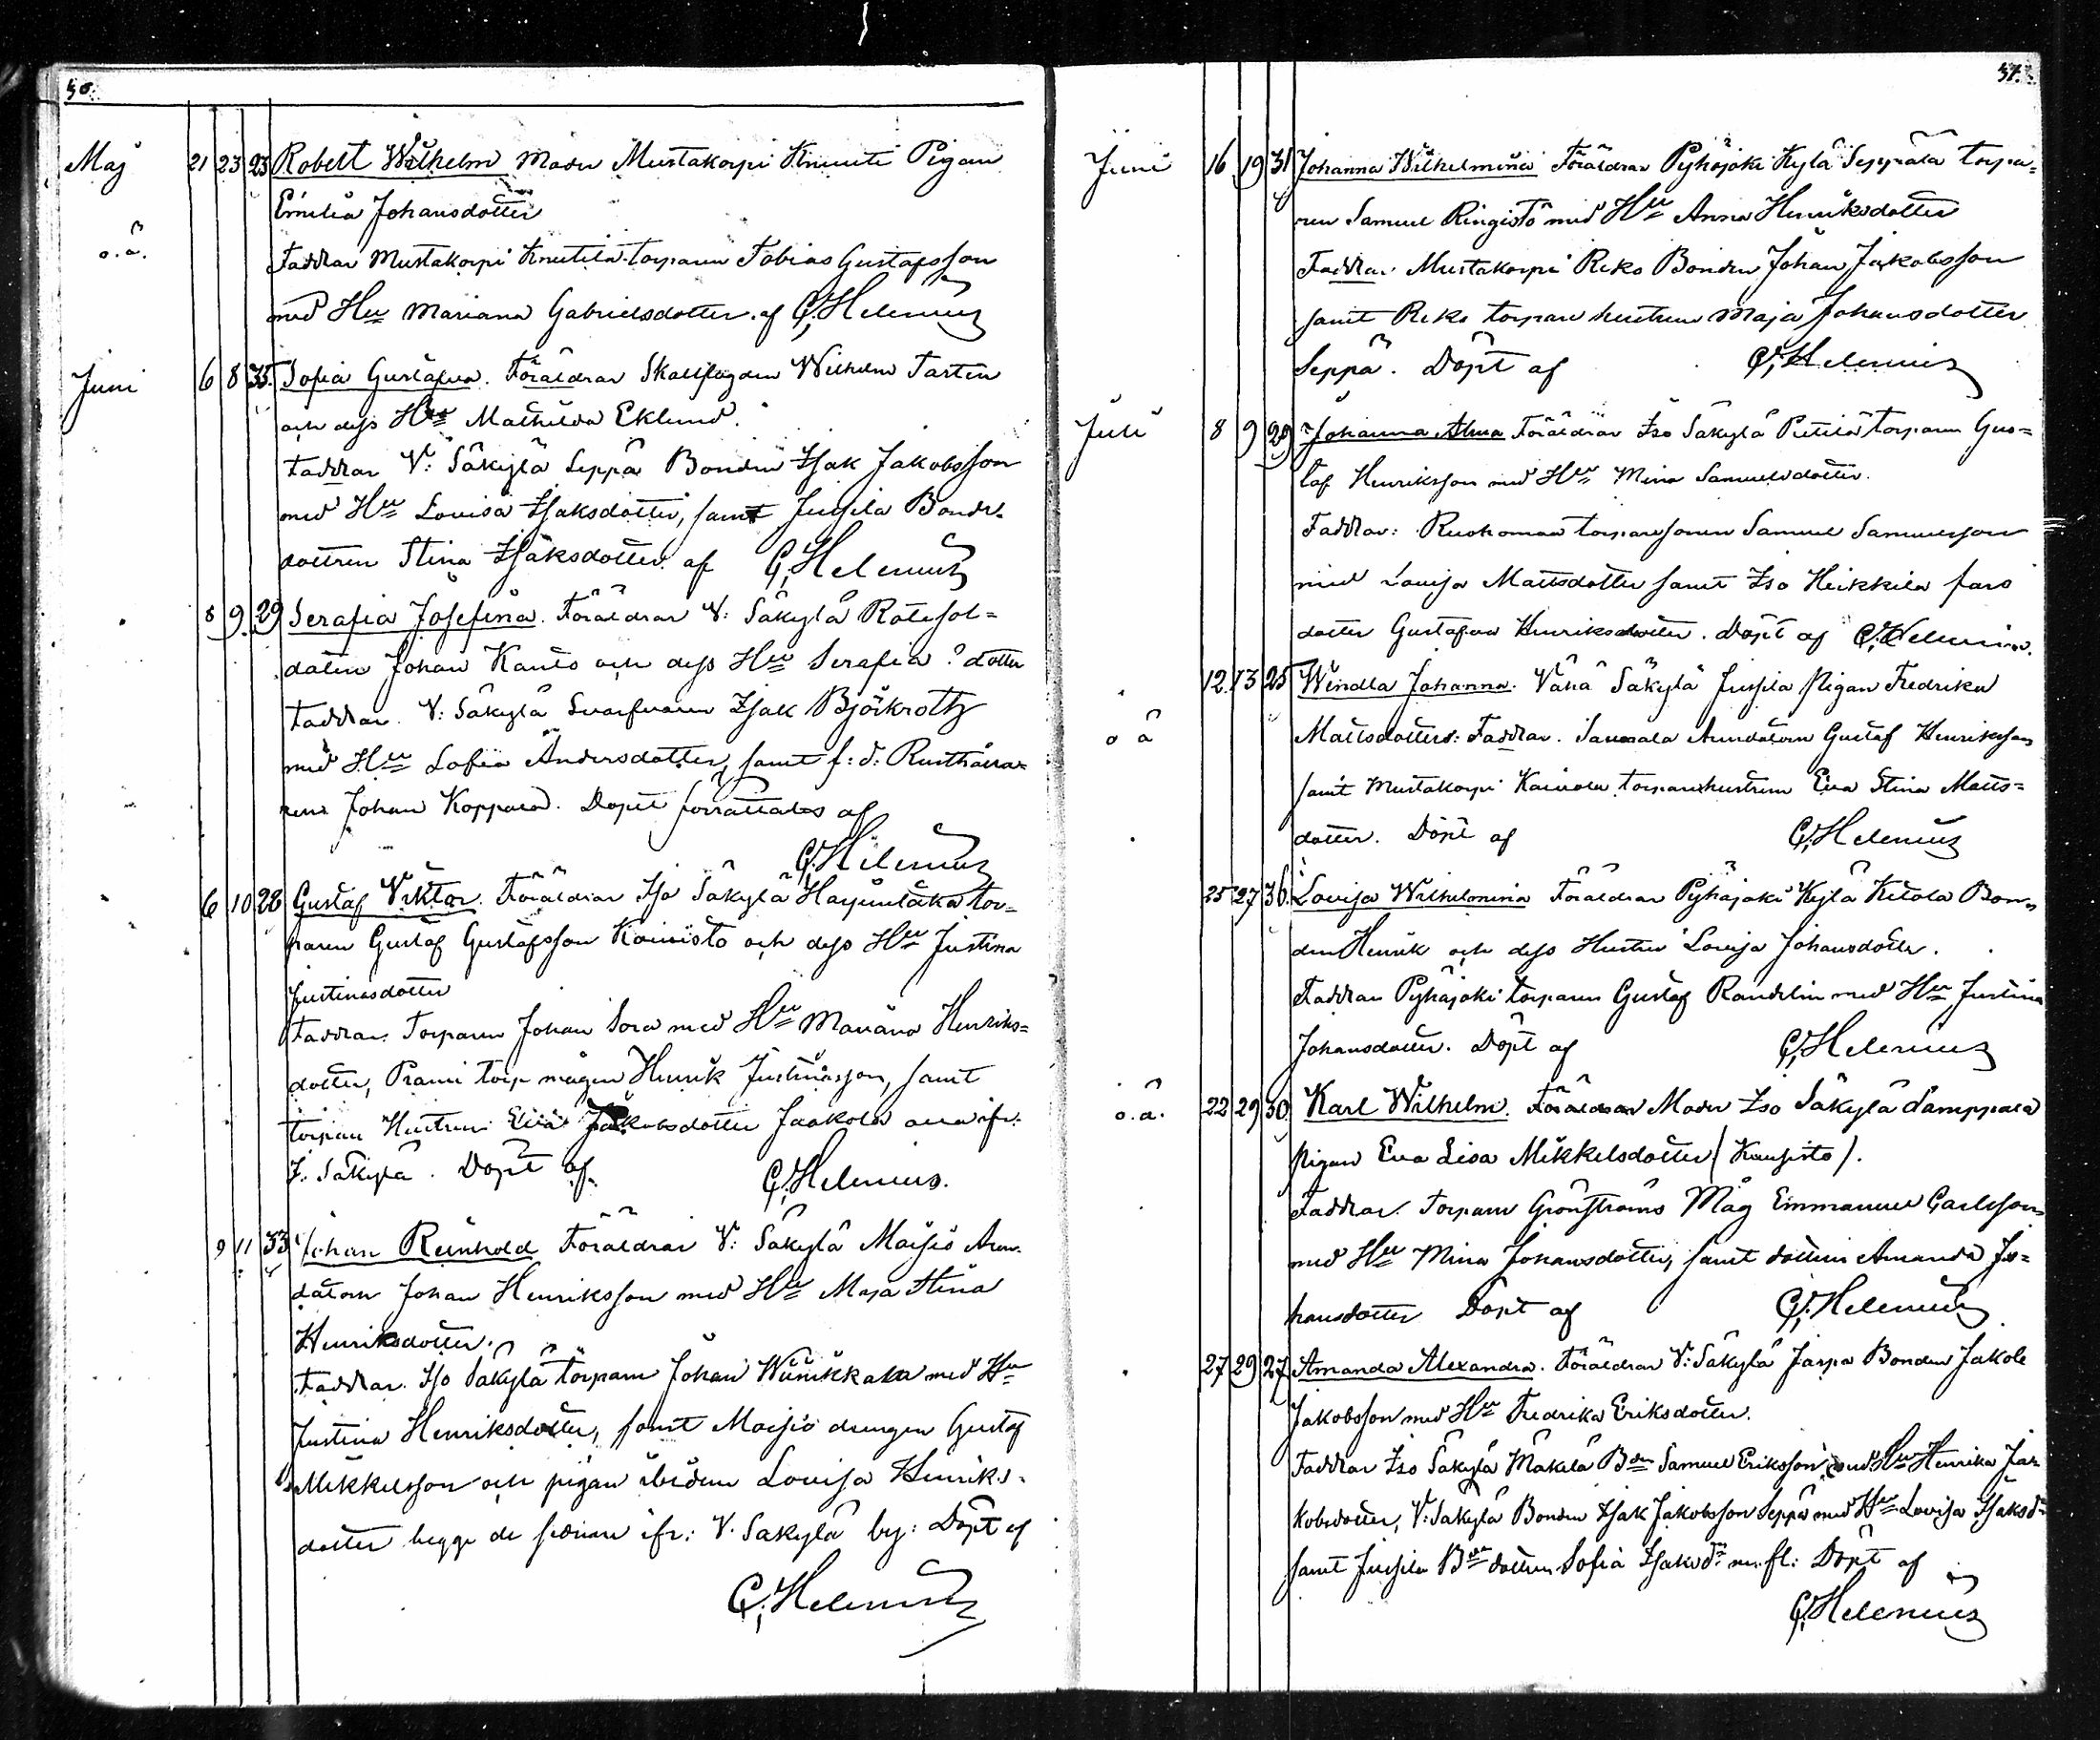 50.
Maj 21 23 23 Robert Wilhelm Moder Mustakorpi Knuuti Pigan
Emilia Johansdotter
o.ä.
Faddrar Mustakorpi Knutila torparen Tobias Gustafsson
med Hu Mariana Gabrielsdotter. af G. Helenius
Juni 6 8 35. Sofia Gustafva. Föräldrar Skallfogden Wilhelm Tarten
och dess Hu Mathilda Eklund.
Faddrar V: Säkylä Seppä Bonden Isak Jakobsson
med Hu Lovisa Isaksdotter, samt Jussila Bonde-
dottren Stina Isaksdotter. af G. Helenius
8 9 29 Serafia Josefina. Föräldrar V: Säkylä Rotesol=
daten Johan Kanto och dess Hu Serafia ? dotter
Faddrar. V: Säkylä Svarfvaren Isak Björkroth
med Hu Sofia Andersdotter, samt f: d: Rusthålla-
ren Johan Koppala. Dopet förrättades af
G. Helenius
6 10 28 Gustaf Viktor. Föräldrar Iso Säkylä Harjuntaka tor-
paren Gustaf Gustafsson Koivisto och dess Hu Justina
Justinasdotter
Faddrar. Torparen Johan Sora med Hu Mariana Henriks=
dotter, Prami torp mågen Henrik Justinasson, samt
torpare Hustrun Eva Jakobsdotter Jaakola alla ifr.
I. Säkylä. Döpt af G. Helenius.
9 11 33 Johan Reinhold Föräldrar V: Säkylä Maisio Aren-
datorn Johan Henriksson med Hu Maja Stina
Henriksdotter.
Faddrar. Iso Säkylä torparen Johan Wiinikkala med Hu
Justina Henriksdotter, samt Maisio drengen Gustaf
Mikkelsson och pigan ibidem Lovisa Henriks-
dotter begge de sednare ifr: V. Säkylä by: Döpt af
G. Helenius
51.
Juni 16 19 31 Johanna Wilhelmina Föräldrar Pyhäjoki Kylä Seppälä torpa=
ren Samuel Ringistö med Hu Anna Henriksdotter
Faddrar. Mustakorpi Reko Bonden Johan Jakobsson
samt Reko torpare hustrun Maja Johansdotter
Seppä. Döpt af G. Helenius
Juli 8 9 29 Johanna Alma Föräldrar Iso Säkylä Pietilä torparen Gus=
taf Henriksson med Hu Mina Samuelsdotter.
Faddrar: Ruohomaa torparesonen Samuel Samuelsson
med Lovisa Mattsdotter samt Iso Heikkilä fars
dotter Gustafva Henriksdotter. Döpt af G. Helenius.
12 13 25 Wendla Johanna. Vähä Säkylä Jussila Pigan Fredrika
o ä
Mattsdotters: Faddrar. Sammala Arendatorn Gustaf Henriksson
samt Mustakorpi Kaivola torparehustrun Eva Stina Matts=
dotter. Döpt af G. Helenius
25 27 36. Lovisa Wilhelmina Föräldrar Pyhäjoki Kylä Ketola Bon=
den Henrik och dess Hustru Lovisa Johansdotter.
Faddrar Pyhäjoki torparen Gustaf Randelin med Hu Justina
Johansdotter. Döpt af G. Helenius
o.ä. 22 29 30 Karl Wilhelm. Föräldrar Moder Iso Säkylä Samppala
pigan Eva Lisa Mikkelsdotter (Kangisto).
Faddrar. Torparen Grönströms Måg Emmanuel Carlsson
med Hu Mina Johansdotter, samt dottren Amanda Jo=
hansdotter Döpt af G. Helenius
27 29 27 Amanda Alexandra. Föräldrar V: Säkylä Jaspa Bonden Jakob
Jakobsson med Hu Fredrika Eriksdotter.
Faddrar Iso Säkylä Mäkelä Bden Samuel Eriksson med Hu Henrika Ja=
kobsdotter, V: Säkylä Bonden Isak Jakobsson Seppä med Hu Lovisa Isaksdr
samt Jussila Bde dottren Sofia Isaksdr m. fl: Döpt af
G. Helenius